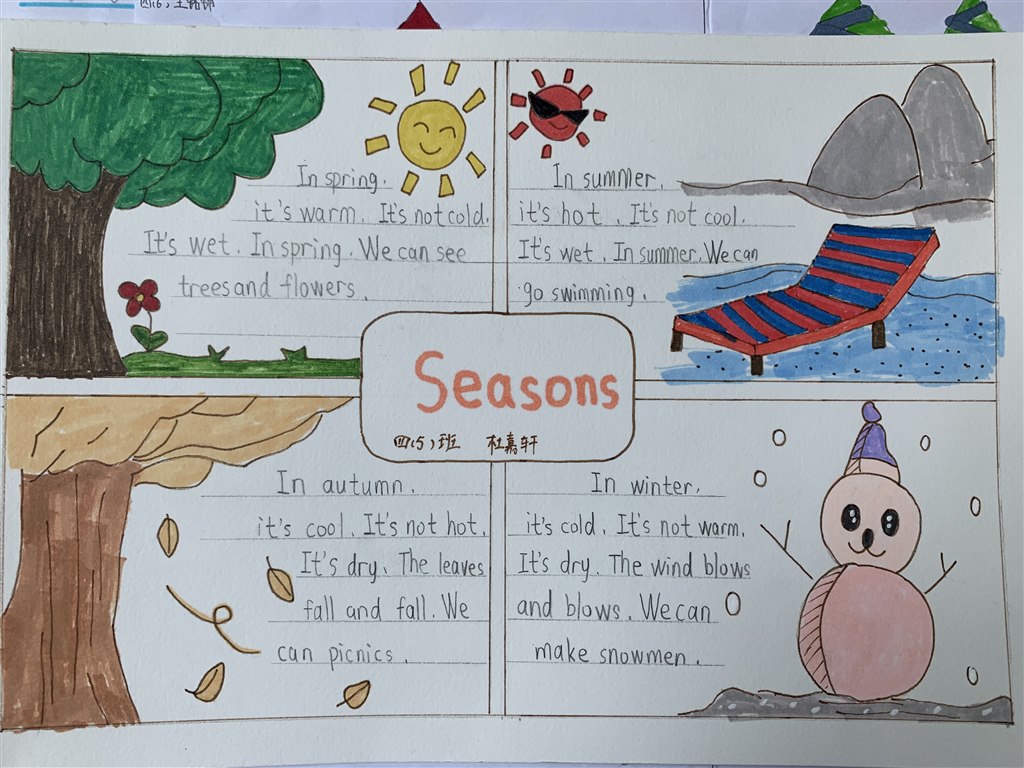 In spring.
it's warm. It's not cold.
It's wet. In spring. We can see
trees and flowers.
In summer.
it's hot. It's not cool.
It's wet. In summer. We can
go swimming.
Seasons
四(5)班 杜嘉轩
In autumn.
it's cool. It's not hot.
It's dry. The leaves
fall and fall. We
can picnics.
In winter.
it's cold. It's not warm.
It's dry. The wind blows
and blows. We can
make snowmen.